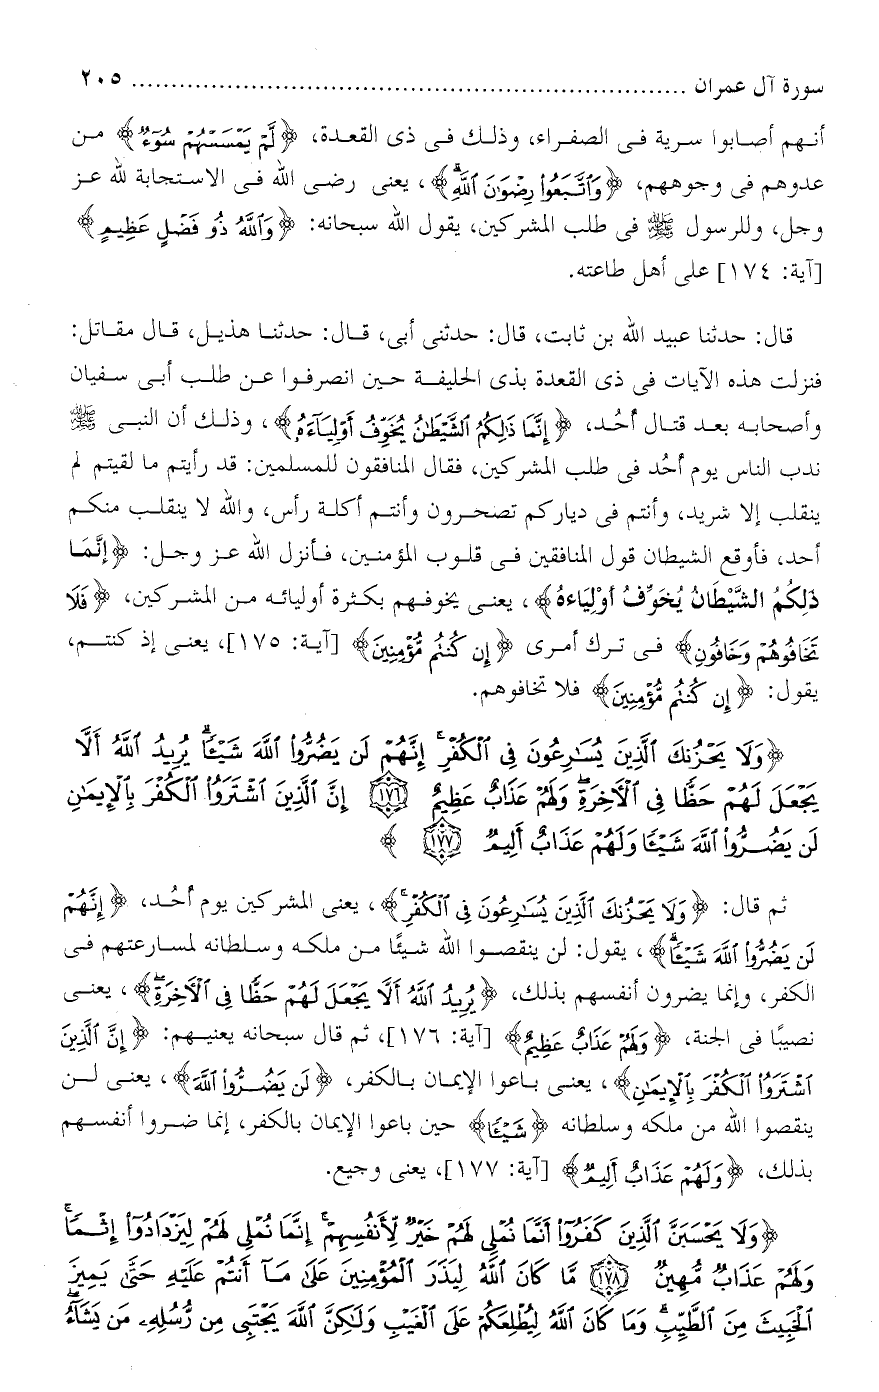 سورة آل عمران ........................................................................ ٢٠٥
أنهم أصابوا سرية فى الصفراء، وذلك فى ذى القعدة، ﴿لَّمْ يَمْسَسْهُمْ سُوٓءٌ﴾ من
عدوهم فى وجوههم، ﴿وَٱتَّبَعُوا۟ رِضْوَٰنَ ٱللَّهِ﴾، يعنى رضى الله فى الاستجابة لله عز
وجل، وللرسول ﷺ فى طلب المشركين، يقول الله سبحانه: ﴿وَٱللَّهُ ذُو فَضْلٍ عَظِيمٍ﴾
[آية: ١٧٤] على أهل طاعته.
قال: حدثنا عبيد الله بن ثابت، قال: حدثنى أبى، قال: حدثنا هذيل، قال مقاتل:
فنزلت هذه الآيات فى ذى القعدة بذى الحليفة حين انصرفوا عن طلب أبى سفيان
وأصحابه بعد قتال أُحُد، ﴿إِنَّمَا ذَٰلِكُمُ ٱلشَّيْطَٰنُ يُخَوِّفُ أَوْلِيَآءَهُ﴾، وذلك أن النبى ﷺ
ندب الناس يوم أُحُد فى طلب المشركين، فقال المنافقون للمسلمين: قد رأيتم ما لقيتم لم
ينقلب إلا شريد، وأنتم فى دياركم تصحرون وأنتم أكلة رأس، والله لا ينقلب منكم
أحد، فأوقع الشيطان قول المنافقين فى قلوب المؤمنين، فأنزل الله عز وجل: ﴿إِنَّمَا
ذَلِكُمُ الشَّيْطَانُ يُخَوِّفُ أَوْلِيَاءهُ﴾، يعنى يخوفهم بكثرة أوليائه من المشركين، ﴿فَلَا
تَخَافُوهُمْ وَخَافُونِ﴾ فى ترك أمرى ﴿إِن كُنتُم مُّؤْمِنِينَ﴾ [آية: ١٧٥]، يعنى إذ كنتم،
يقول: ﴿إِن كُنتُم مُّؤْمِنِينَ﴾ فلا تخافوهم.
﴿وَلَا يَحْزُنكَ ٱلَّذِينَ يُسَٰرِعُونَ فِى ٱلْكُفْرِ ۚ إِنَّهُمْ لَن يَضُرُّوا۟ ٱللَّهَ شَيْـًٔا ۗ يُرِيدُ ٱللَّهُ أَلَّا
يَجْعَلَ لَهُمْ حَظًّا فِى ٱلْءَاخِرَةِ ۖ وَلَهُمْ عَذَابٌ عَظِيمٌ ١٧٦ إِنَّ ٱلَّذِينَ ٱشْتَرَوُا۟ ٱلْكُفْرَ بِٱلْإِيمَٰنِ
لَن يَضُرُّوا۟ ٱللَّهَ شَيْـًٔا وَلَهُمْ عَذَابٌ أَلِيمٌ ١٧٧ ﴾
ثم قال: ﴿وَلَا يَحْزُنكَ ٱلَّذِينَ يُسَٰرِعُونَ فِى ٱلْكُفْرِ ۚ﴾، يعنى المشركين يوم أُحُد، ﴿إِنَّهُمْ
لَن يَضُرُّوا۟ ٱللَّهَ شَيْـًٔا ۗ﴾، يقول: لن ينقصوا الله شيئًا من ملكه وسلطانه لمسارعتهم فى
الكفر، وإنما يضرون أنفسهم بذلك، ﴿يُرِيدُ ٱللَّهُ أَلَّا يَجْعَلَ لَهُمْ حَظًّا فِى ٱلْءَاخِرَةِ ۖ﴾، يعنى
نصيبًا فى الجنة، ﴿وَلَهُمْ عَذَابٌ عَظِيمٌ﴾ [آية: ١٧٦]، ثم قال سبحانه يعنيهم: ﴿إِنَّ ٱلَّذِينَ
ٱشْتَرَوُا۟ ٱلْكُفْرَ بِٱلْإِيمَٰنِ﴾، يعنى باعوا الإيمان بالكفر، ﴿لَن يَضُرُّوا۟ ٱللَّهَ﴾، يعنى لن
ينقصوا الله من ملكه وسلطانه ﴿شَيْـًٔا﴾ حين باعوا الإيمان بالكفر، إنما ضروا أنفسهم
بذلك، ﴿وَلَهُمْ عَذَابٌ أَلِيمٌ﴾ [آية: ١٧٧]، يعنى وجيع.
﴿وَلَا يَحْسَبَنَّ ٱلَّذِينَ كَفَرُوٓا۟ أَنَّمَا نُمْلِى لَهُمْ خَيْرٌ لِّأَنفُسِهِمْ ۚ إِنَّمَا نُمْلِى لَهُمْ لِيَزْدَادُوٓا۟ إِثْمًا ۚ
وَلَهُمْ عَذَابٌ مُّهِينٌ ١٧٨ مَّا كَانَ ٱللَّهُ لِيَذَرَ ٱلْمُؤْمِنِينَ عَلَىٰ مَآ أَنتُمْ عَلَيْهِ حَتَّىٰ يَمِيزَ
ٱلْخَبِيثَ مِنَ ٱلطَّيِّبِ ۗ وَمَا كَانَ ٱللَّهُ لِيُطْلِعَكُمْ عَلَى ٱلْغَيْبِ وَلَٰكِنَّ ٱللَّهَ يَجْتَبِى مِن رُّسُلِهِۦ مَن يَشَآءُ ۖ